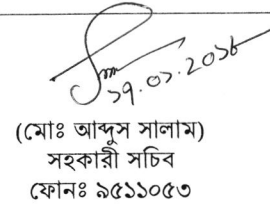 ১৭.০১.২০১৮
(মোঃ আব্দুস সালাম)
সহকারী সচিব
ফোনঃ ৯৫১১০৫৩